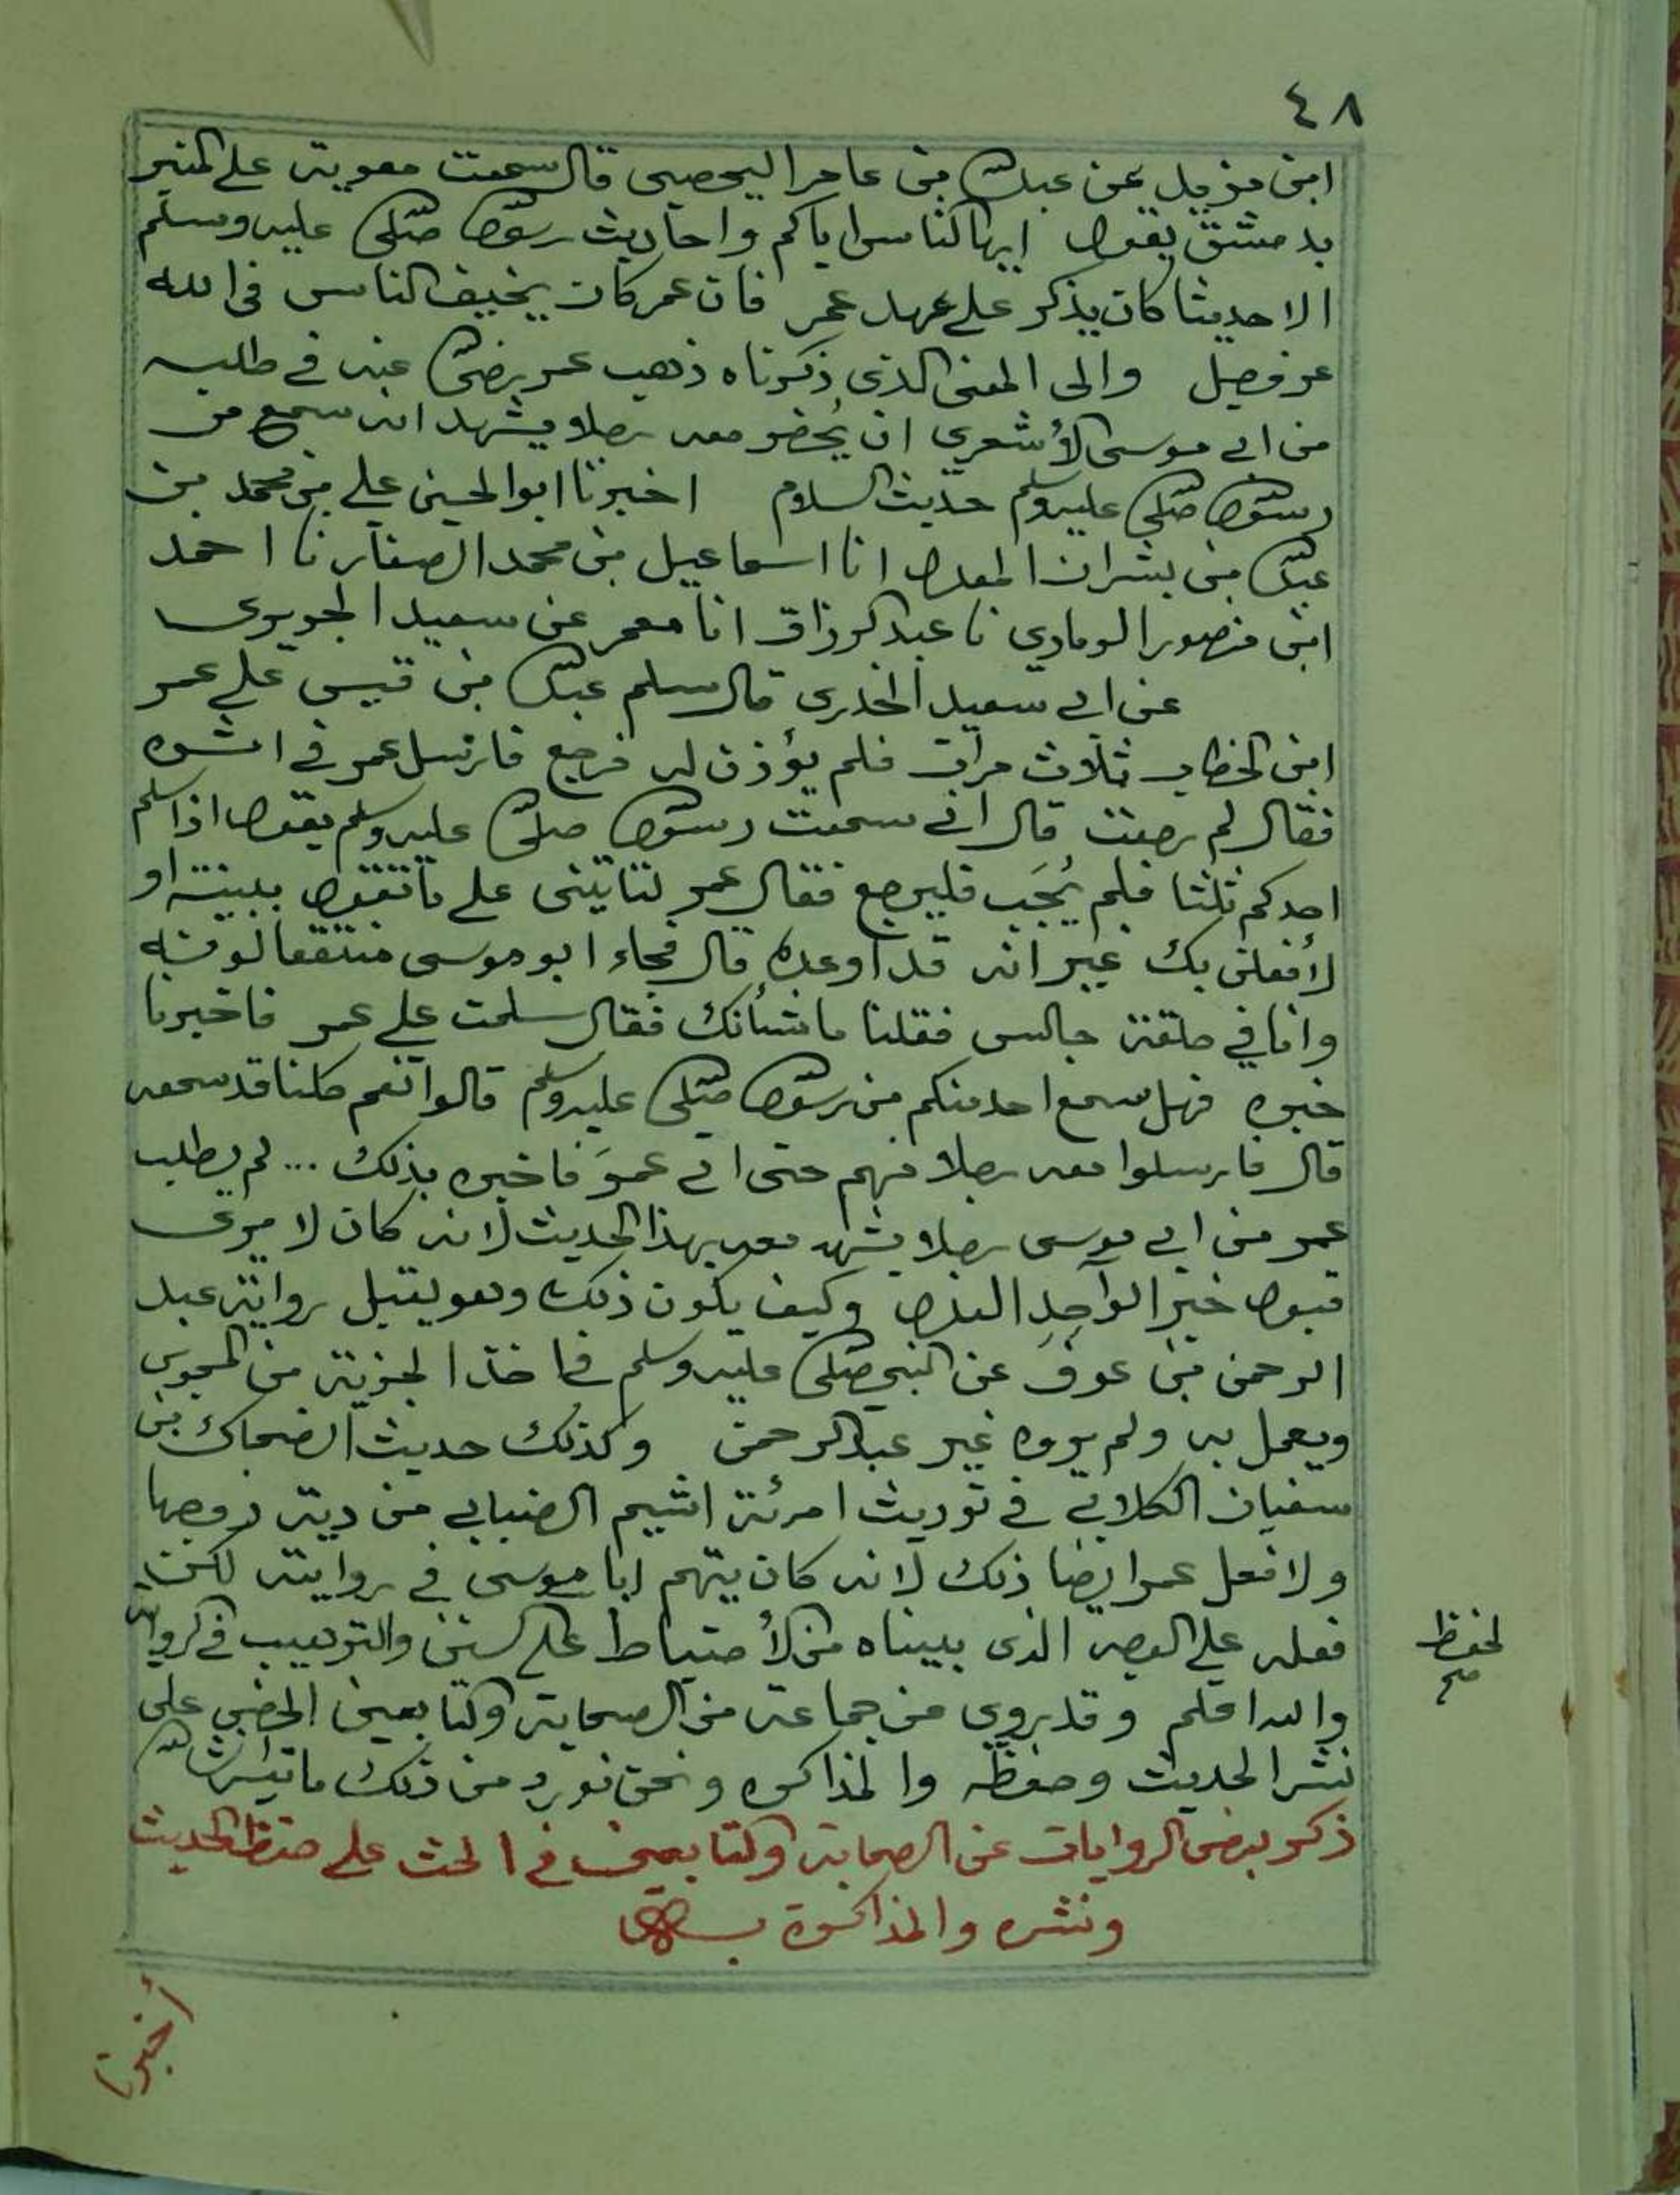 ٤٨
ابن مزيد عن عبد الله بن عامر اليحصبى قال سمعت معوية على المنبر
بدمشق يقول ايها الناس اياكم واحاديث رسول الله صلى الله عليه وسلم
الا حديثا كان يذكر على عهد عمر فان عمر كان يخيف الناس فى الله
عز وجل والى المعنى الذى ذكرناه ذهب عمر رضى الله عنه في طلبه
من ابي موسى الأشعري ان يُحضر معه رجلا يشهد انه سمع من
رسول الله صلى الله عليه وسلم حديث السلام اخبرنا ابو الحسين علي بن محمد بن
عبد الله بن بشران المعدل انا اسماعيل بن محمد الصفار نا احمد
ابن منصور الرمادي نا عبد الرزاق انا معمر عن سعيد الجريرى
عن ابي سعيد الخدرى قال سلم عبد الله بن قيس على عمر
ابن الخطاب ثلاث مرات فلم يؤذن له فرجع فارسل عمر في اثره
فقال لم رجعت قال اني سمعت رسول الله صلى الله عليه وسلم يقول اذا سلم
احدكم ثلثا فلم يُجَب فليرجع فقال عمر لتاتينى على ما تقول ببينة او
لأفعلن بك غير انه قد اوعده قال فجاء ابو موسى منتقعا لونه
وانا في حلقة جالس فقلنا ما شأنك فقال سلمت على عمر فاخبرنا
خبره فهل سمع احد منكم من رسول الله صلى الله عليه وسلم قالوا نعم كلنا قد سمعه
قال فارسلوا معه رجلا منهم حتى اتى عمرَ فاخبره بذلك ... لم يطلب
عمر من ابي موسى رجلا يشهد معه بهذا الحديث لانه كان لا يرى
قبول خبر الواحد العدل وكيف يكون ذلك وهو يقبل رواية عبد
الرحمن بن عوف عن النبي صلى الله عليه وسلم في اخذ الجزية من المجوس
ويعمل به ولم يروه غير عبد الرحمن وكذلك حديث الضحاك بن
سفيان الكلابي في توريث امرئة اشيم الضبابي من دية زوجها
ولا فعل عمر ايضا ذلك لانه كان يتهم ابا موسى في روايته لكن
فعله على الوجه الذى بيناه من الأحتياط على السنن والترهيب في الرواية
والله اعلم وقد روى من جماعة من الصحابة والتابعين الحض على
نشر الحديث وحفظه والمذاكره ونحن نورد من ذلك ما تيسر ان شاء الله
ذكر بعض الروايات عن الصحابة والتابعين في الحث على حفظ الحديث
ونشره والمذاكرة به
لحفظ
صح
أخبرنا